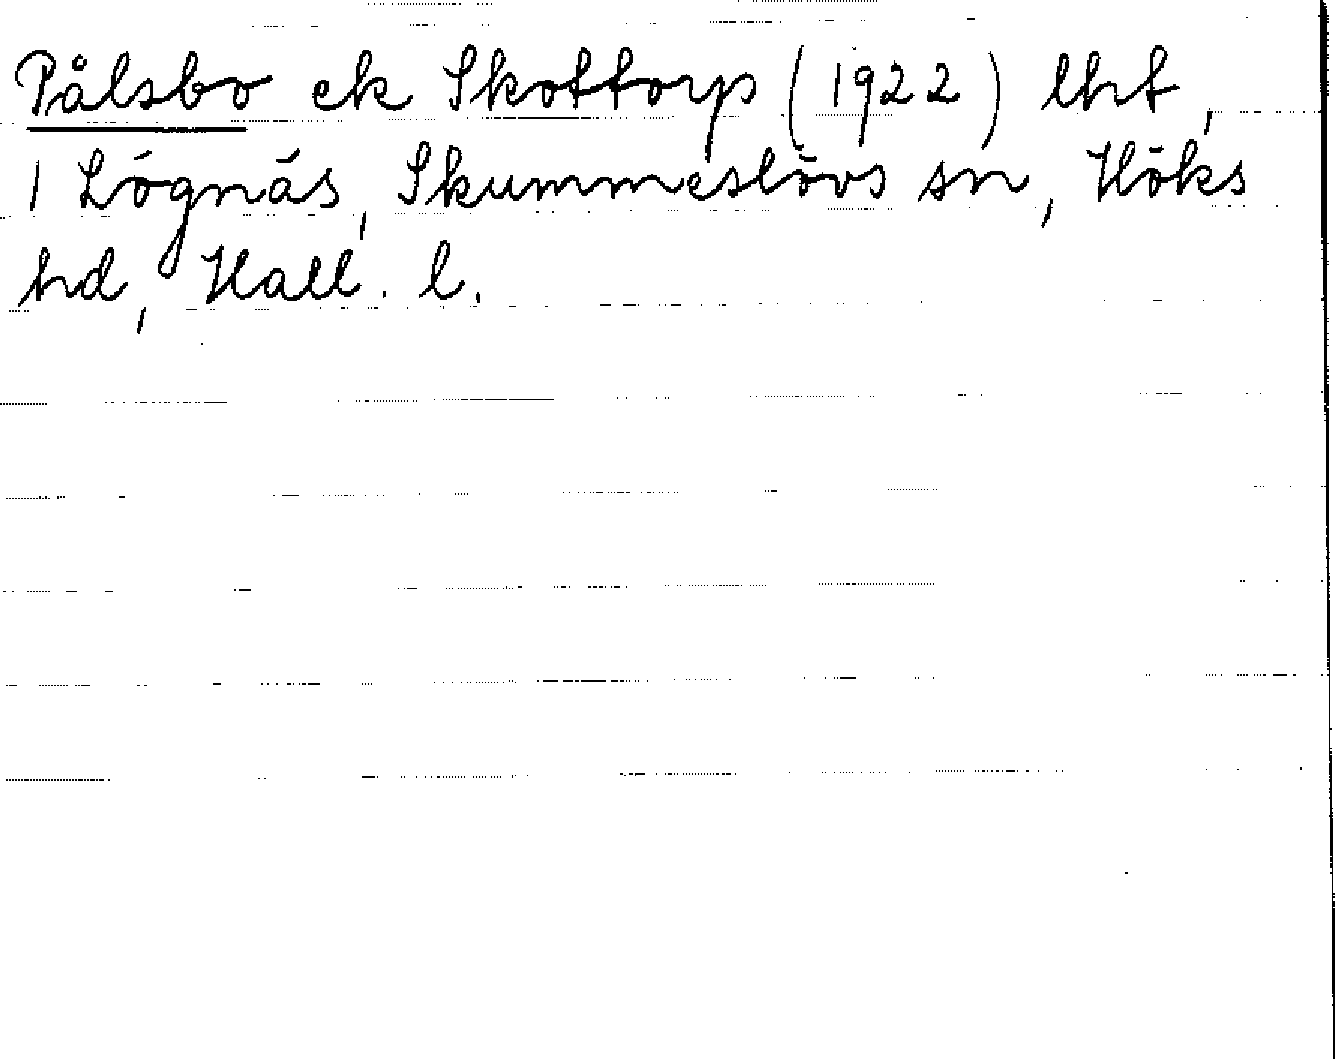 Pålsbo ek Skottorp (1922) lht,
1 Lögnäs, Skummeslövs sn, Höks
hd, Hall. l.